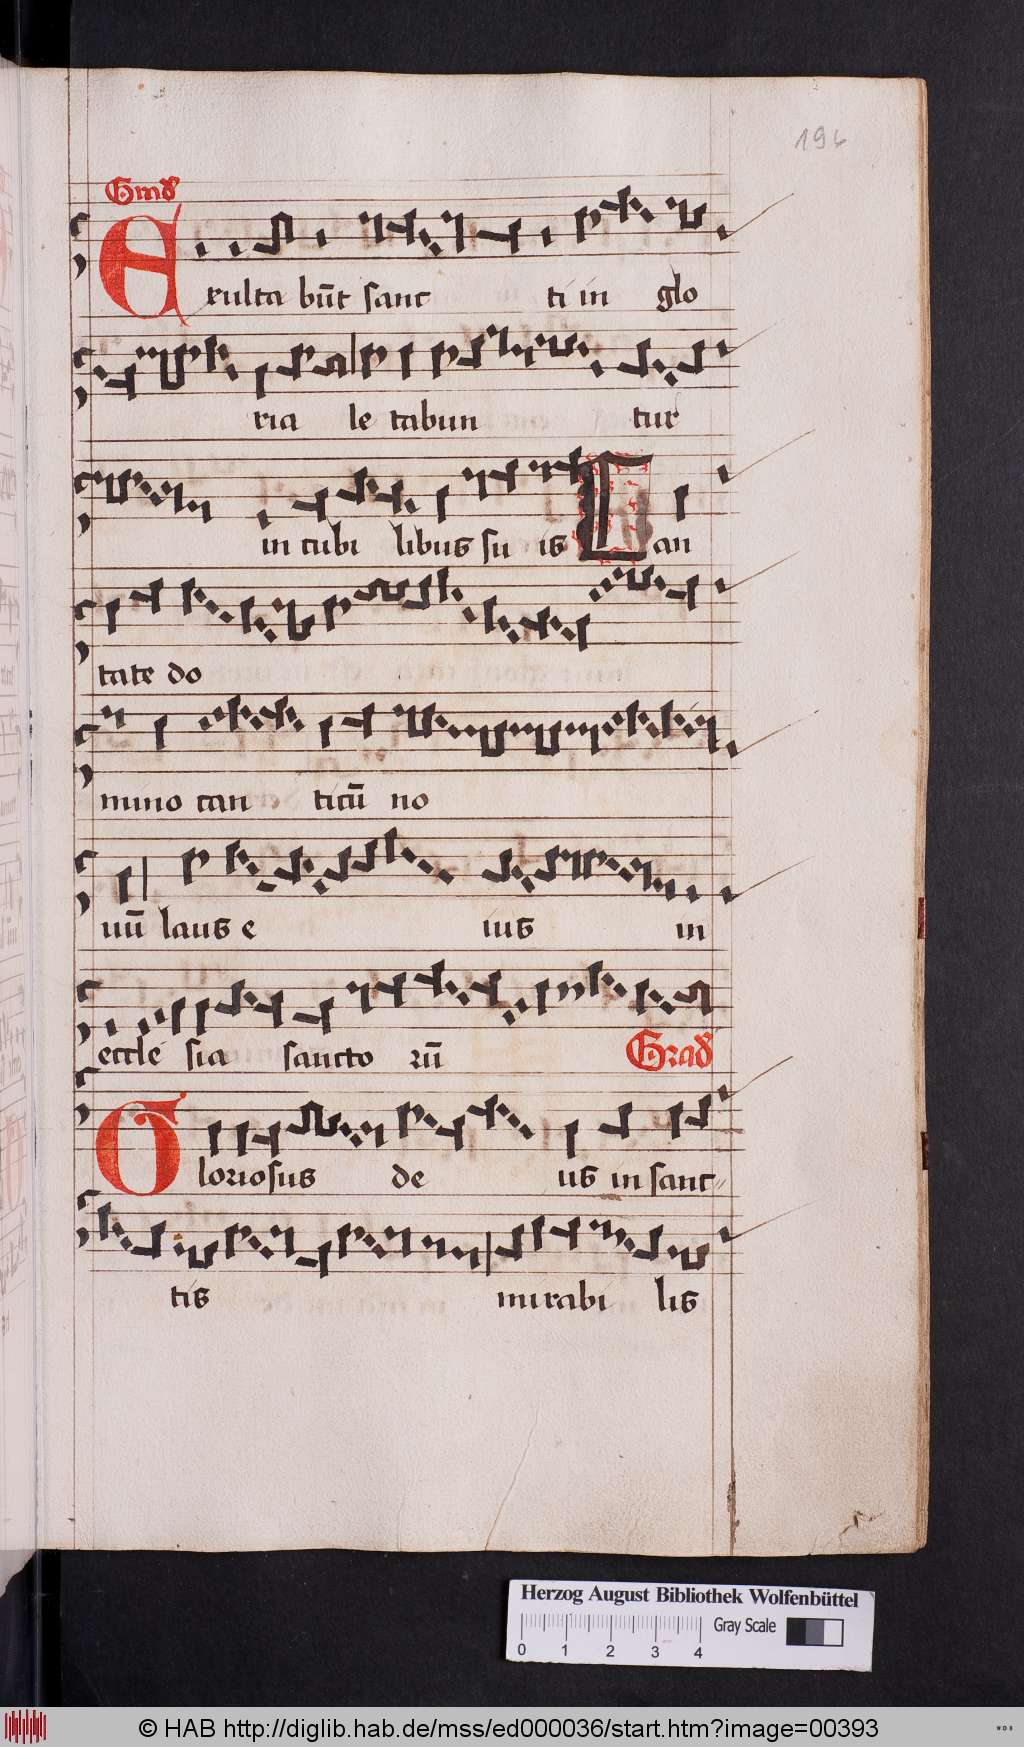 196
Grad
Exulta būt sanc ti in glo
ria le tabun tur
in cubi libus su is Can
tate do
mino can ticū no
uū laus e ius in
eccle sia sancto rū Grad
Gloriosus de us in sanc
tis mirabi lis
Herzog August Bibliothek Wolfenbüttel
Gray Scale
0 1 2 3 4
© HAB http://diglib.hab.de/mss/ed000036/start.htm?image=00393